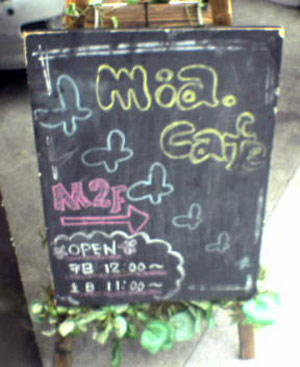 mia.
Café
M2F
OPEN
平日 12:00〜
土日 11:00〜